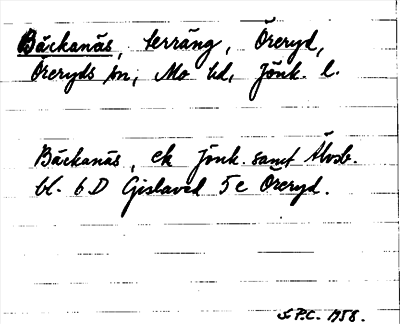 Bäckanäs, terräng, Öreryd,
Öreryds sn, Mo hd, Jönk. l.
Bäckanäs, ek Jönk. samt Älvsb.
bl. 6 D Gislaved 5 c Öreryd.
S.P.C. 1958.